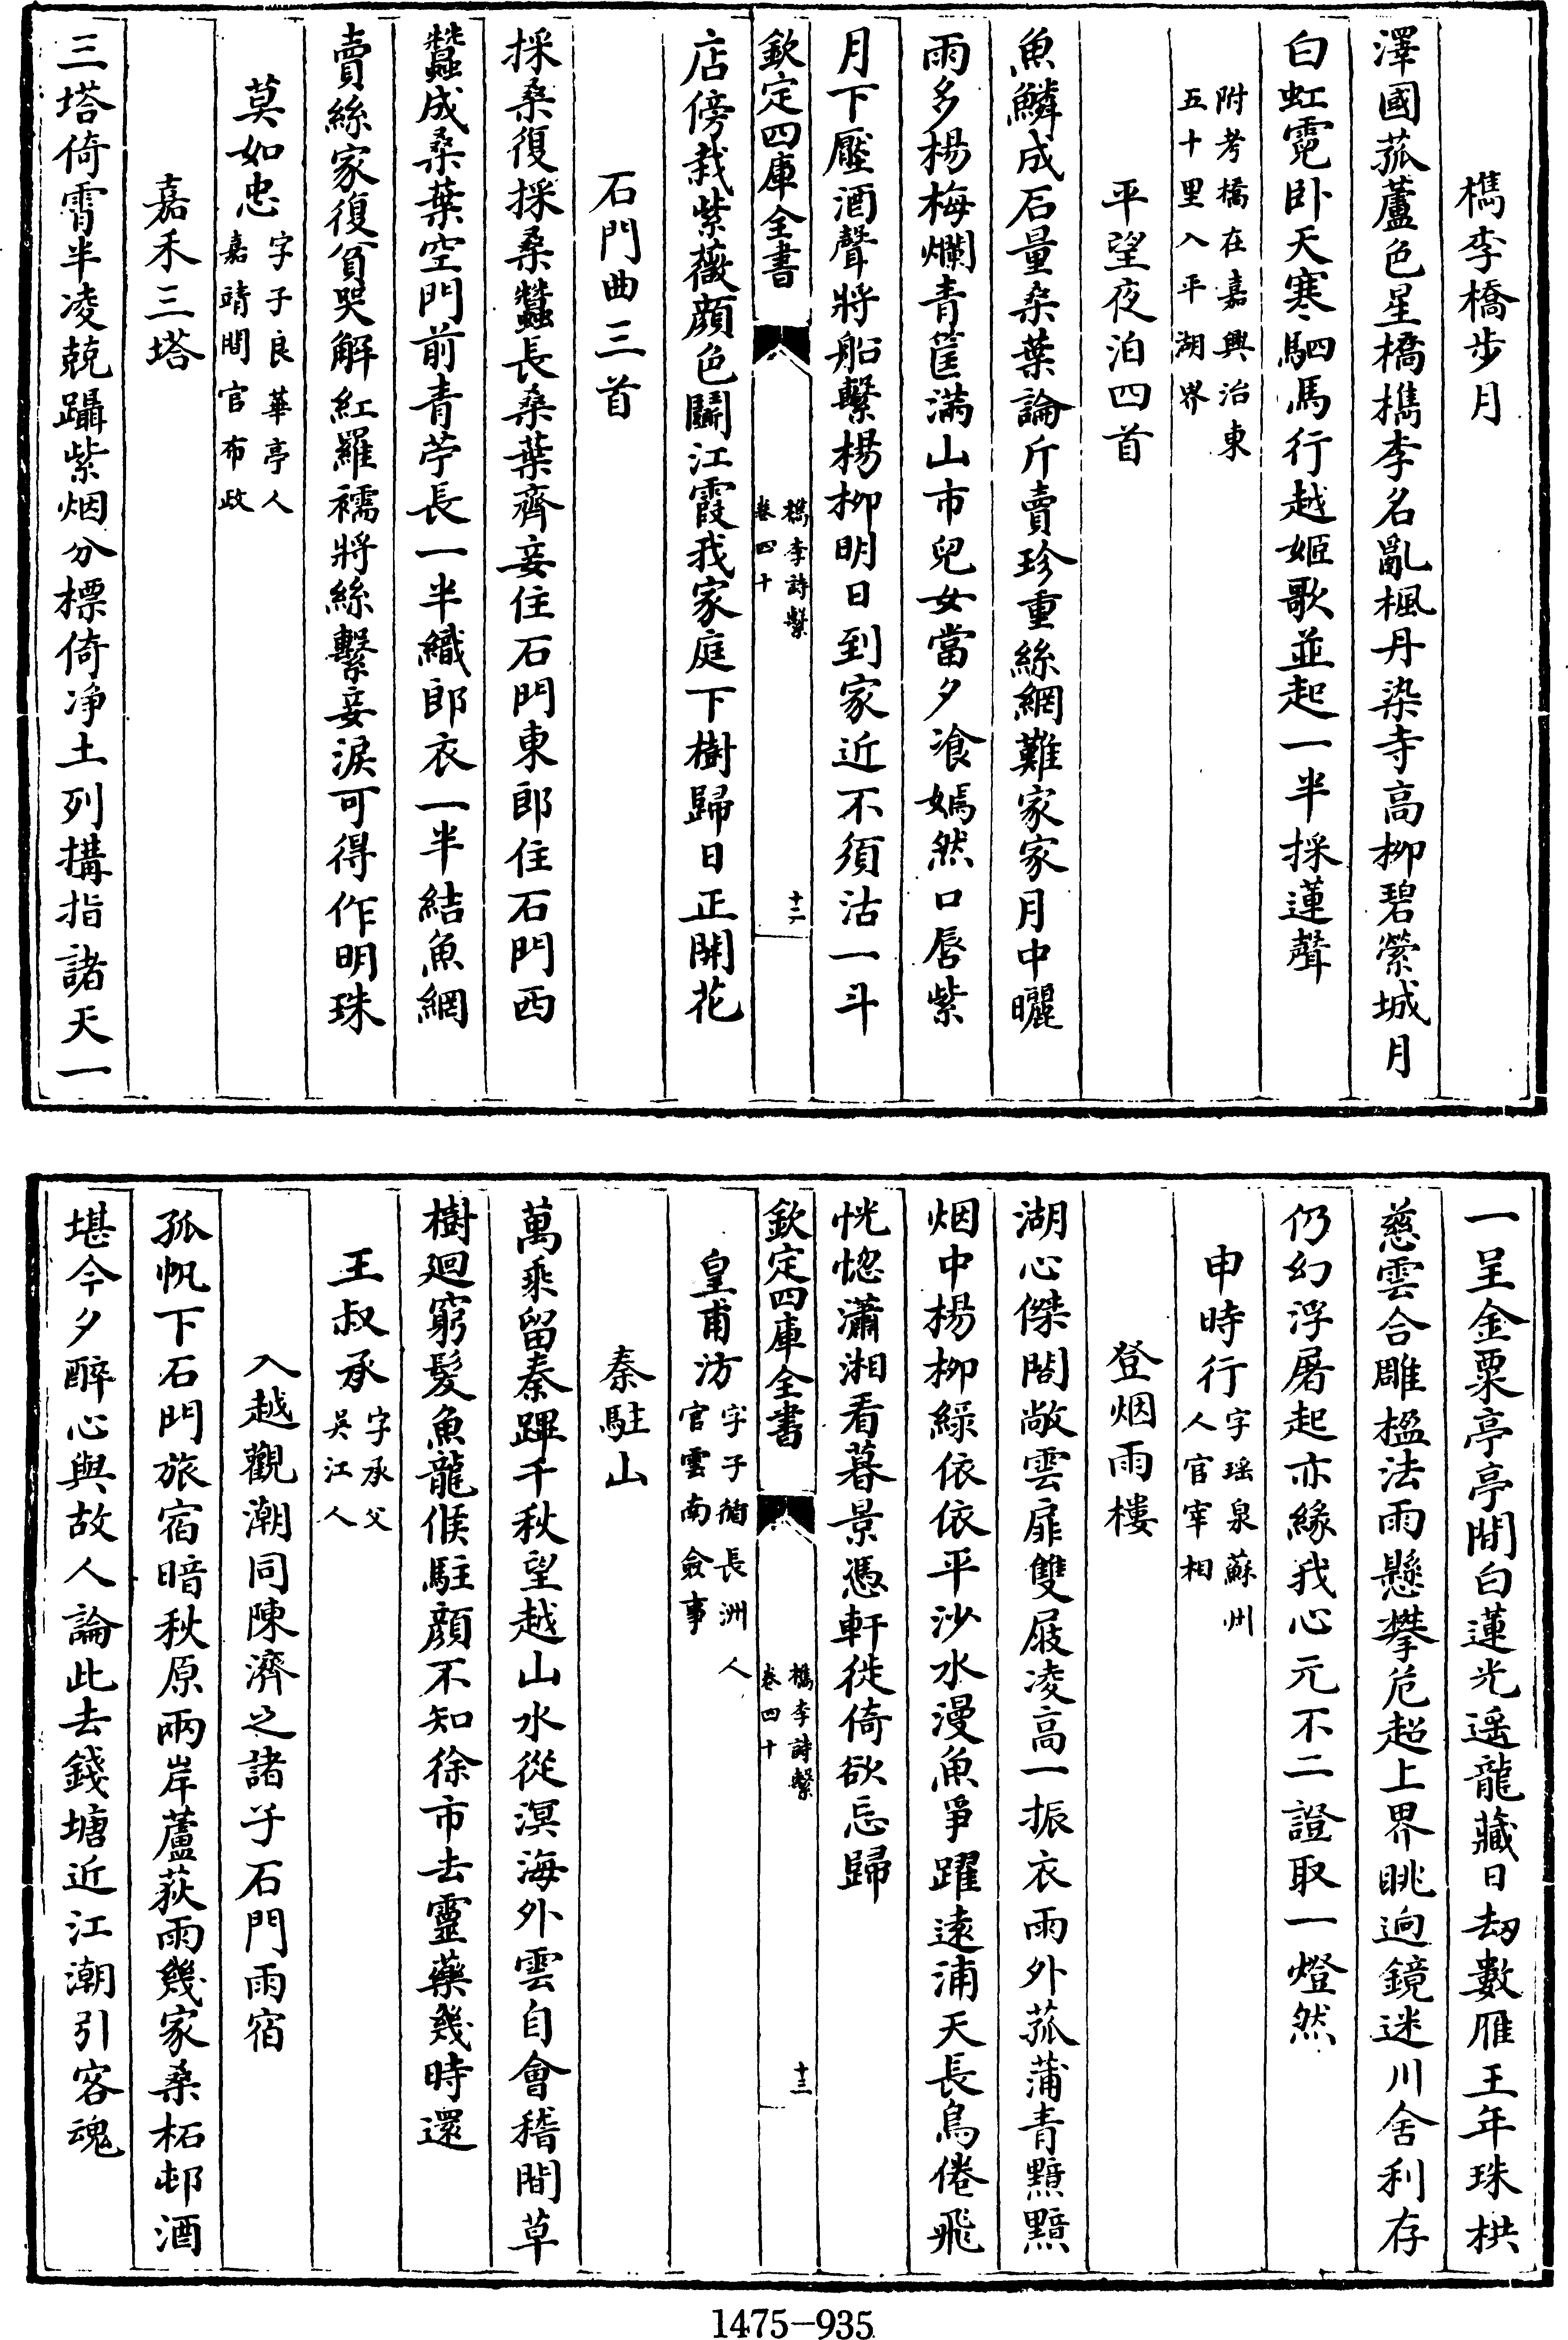 檇李橋步月
澤國菰蘆色星橋檇李名亂楓丹染寺高柳碧縈城月
白虹霓卧天寒駟馬行越姬歌並起一半採蓮聲
附考橋在嘉興治東
五十里入平湖界
平望夜泊四首
魚鱗成石量桑葉論斤賣珍重絲網難家家月中曬
雨多楊梅爛青筐滿山市兒女當夕飡嫣然口唇紫
月下壓酒聲將船繫楊柳明日到家近不須沽一斗
欽定四庫全書
檇李詩繫
卷四十
十二
店傍栽紫薇顔色鬭江霞我家庭下樹歸日正開花
石門曲三首
採桑復採桑蠶長桑葉齊妾住石門東郎住石門西
蠶成桑葉空門前青苧長一半織郎衣一半結魚網
賣絲家復貧哭解紅羅襦將絲繫妾淚可得作明珠
莫如忠字子良華亭人
嘉靖間官布政
嘉禾三塔
三塔倚霄半凌兢躡紫烟分標倚净土列搆指諸天一
一呈金粟亭亭間白蓮光遥龍藏日刼數雁王年珠栱
慈雲合雕楹法雨懸攀危超上界眺迥鏡迷川舍利存
仍幻浮屠起亦緣我心元不二證取一燈然
申時行字瑶泉蘇州
人官宰相
登烟雨樓
湖心傑閣敞雲扉雙屐凌高一振衣雨外菰蒲青黯黯
烟中楊柳綠依依平沙水漫魚爭躍遠浦天長鳥倦飛
恍惚瀟湘看暮景憑軒徙倚欲忘歸
欽定四庫全書
檇李詩繫
卷四十
十三
皇甫汸字子循長洲人
官雲南僉事
秦駐山
萬乘留秦蹕千秋望越山水從溟海外雲自會稽間草
樹廻窮髮魚龍候駐顔不知徐市去靈藥幾時還
王叔承字承父
吳江人
入越觀潮同陳濟之諸子石門雨宿
孤帆下石門旅宿暗秋原兩岸蘆荻雨幾家桑柘邨酒
堪今夕醉心與故人論此去錢塘近江潮引客魂
1475-935